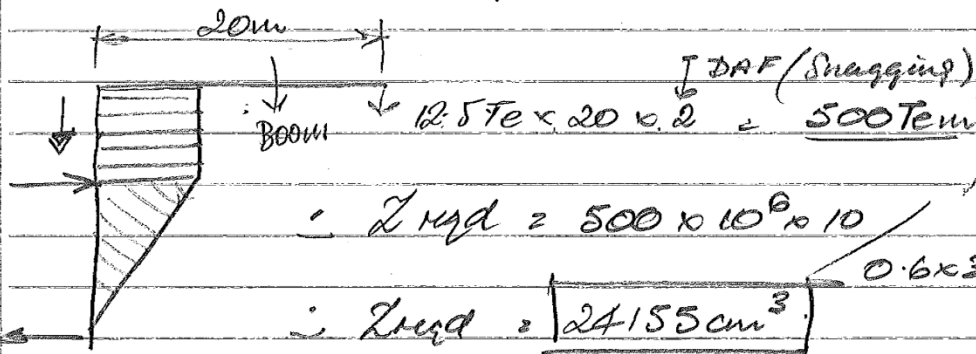 20m
↕ DAF (Snagging)
Boom 12.5Te x 20 x 2 = 500Tem
∴ Z reqd = 500 x 10⁶ x 10
0.6x3
∴ Z reqd = 24155cm³